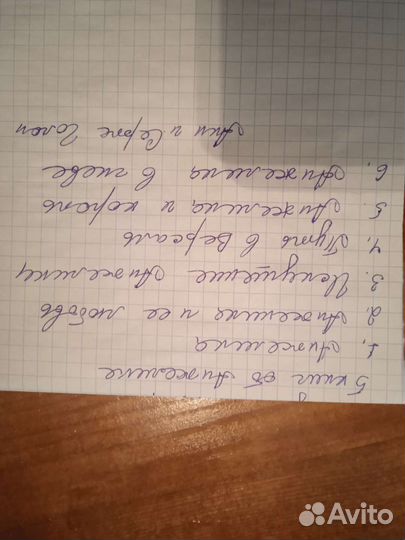 5 книг об Анжелике
1. Анжелика
2. Анжелика и ее любовь
3. Искушение Анжелики
4. Путь в Версаль
5. Анжелика и король
6. Анжелика в гневе
Анн и Серж Голон
Avito